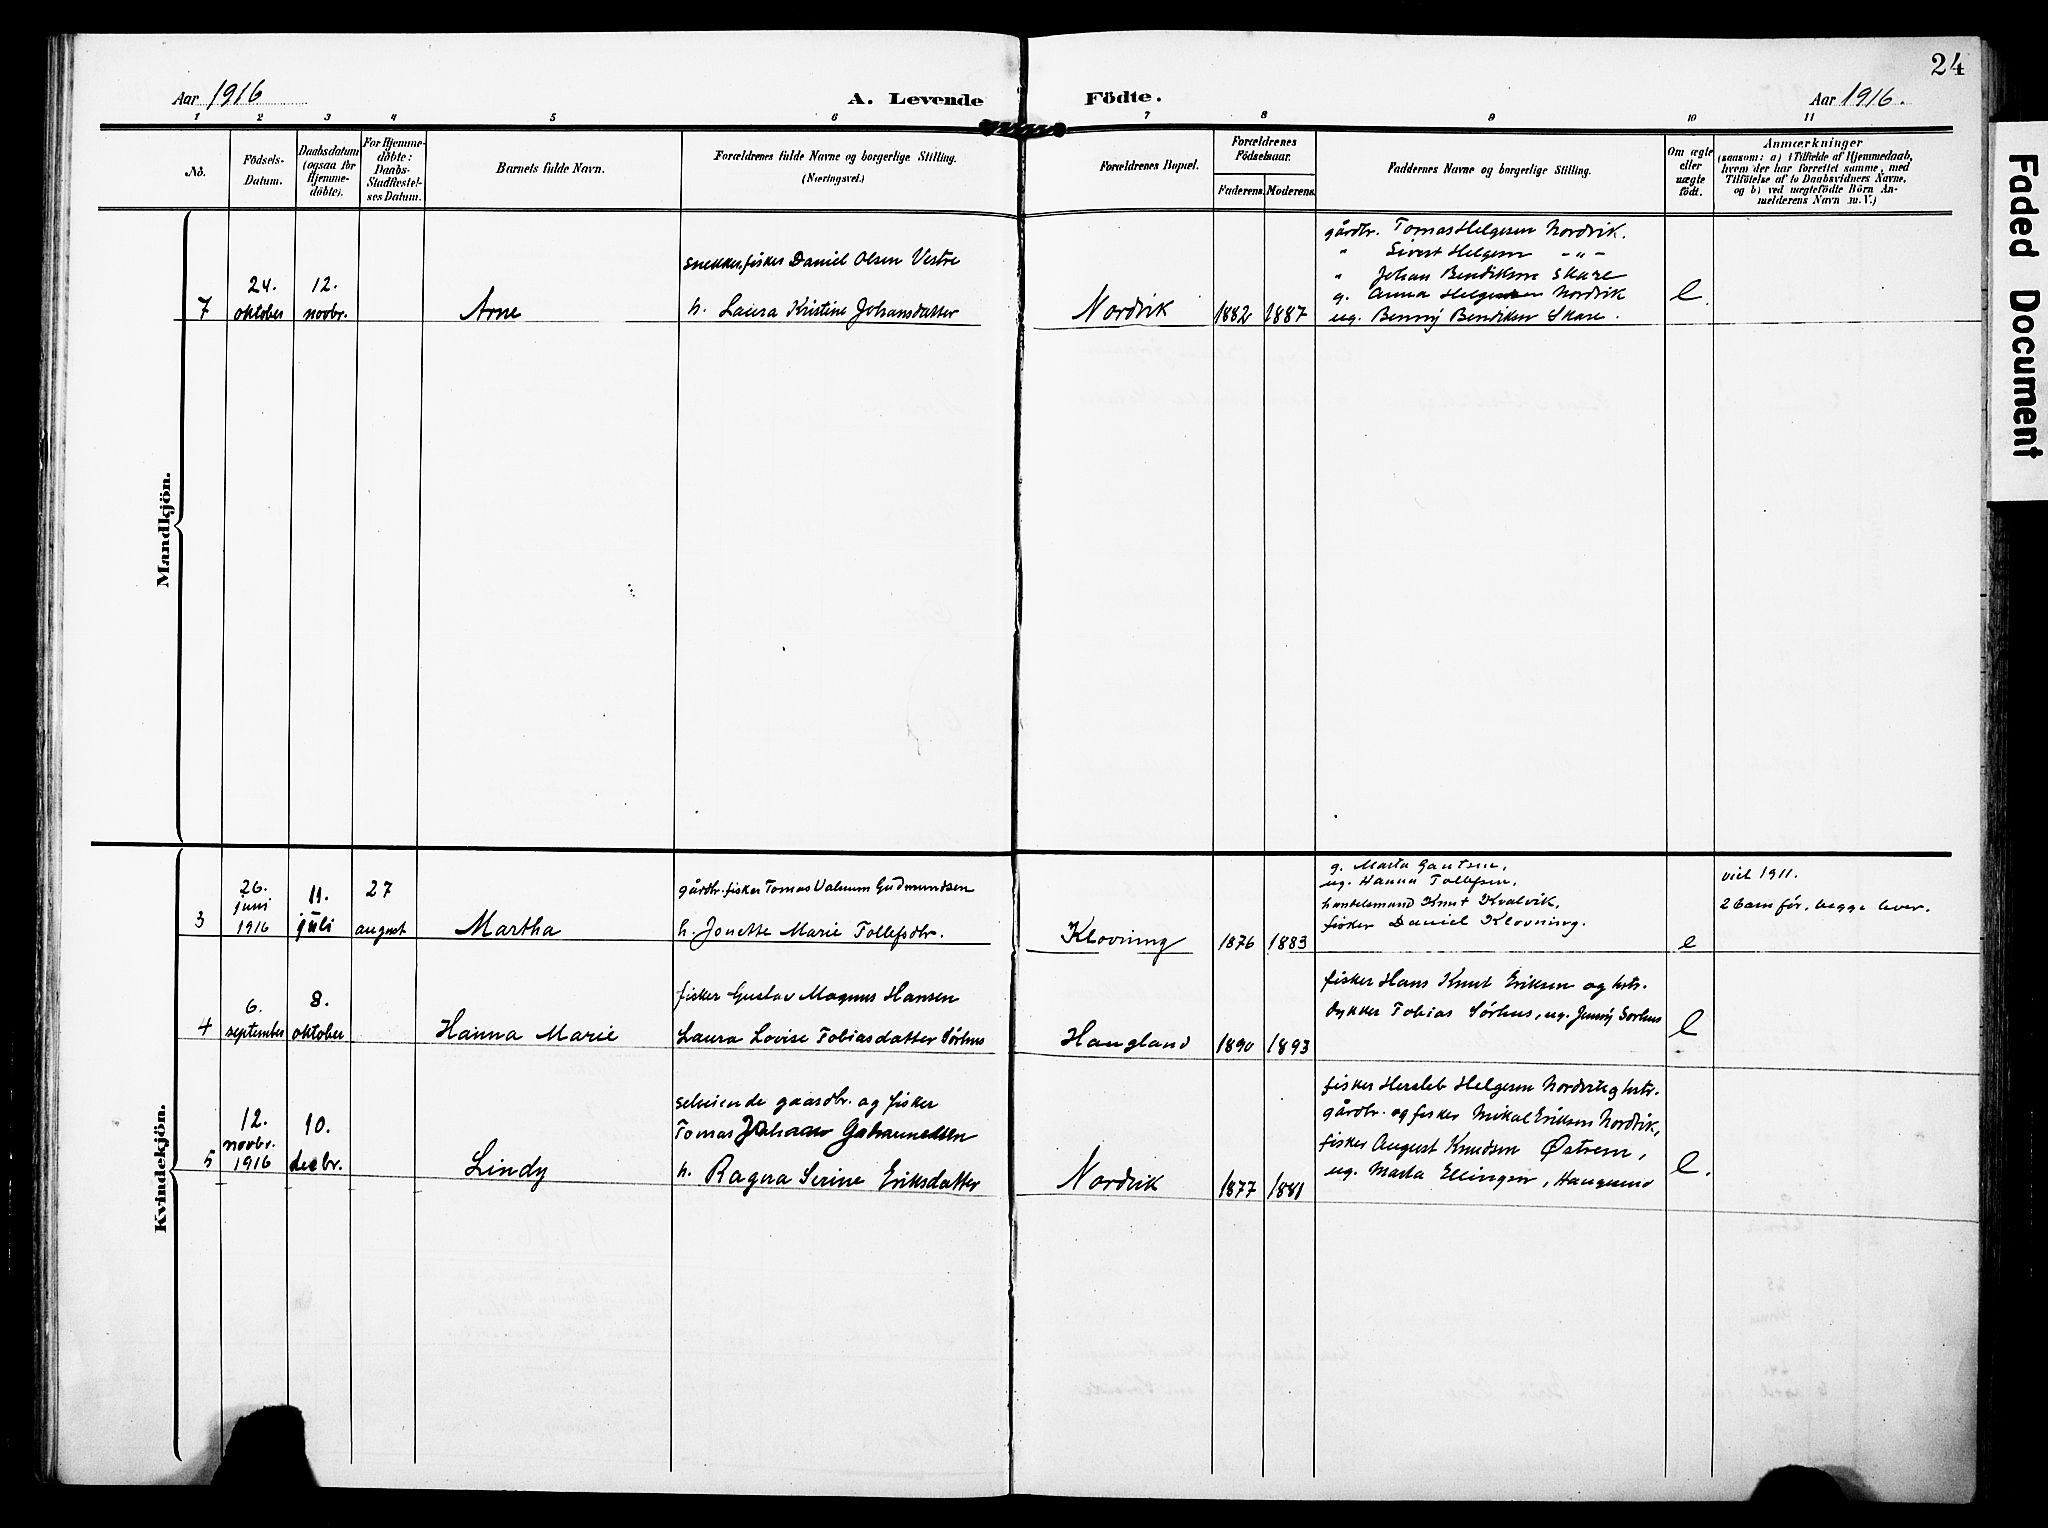 24
Aar 1916
A. Levende Födte.
Aar 1916.
1 2 3 4 5 6 7 8 9 10 11
No.
Födsels-Datum.
Daabsdatum (ogsaa for Hjemmedöbte).
For Hjemmedöbte: Daabs-Stadfæstelses Datum.
Barnets fulde Navn.
Forældrenes fulde Navne og borgerlige Stilling.
(Næringsvei.)
Forældrenes Bopæl.
Forældrenes Födselsaar.
Faderens. Moderens.
Faddernes Navne og borgerlige Stilling.
Om ægte eller uægte födt.
Anmærkninger
(saasom: a) i Tilfælde af Hjemmedaab,
hvem der har forrettet samme, med
Tilföielse af to Daabsvidners Navne,
og b) ved uægtefödte Börn An-
melderens Navn m.V.)
Mandkjön.
7
24. oktober
12. novbr.
Arne
snekker, fisker Daniel Olsen Vestre
h. Laura Kristine Johansdatter
Nordvik
1882 1887
gårdbr. Tomas Helgesen Nordvik.
" Sivert Helgesen - " -
" Johan Bendiksen Skare
g. Anna Helgesen Nordvik
ug. Benny Bendiksen Skare.
e.
Kvindekjön.
3
26. juni 1916
11. juli
27 august
Martha
gårdbr. fisker Tomas Valnum Gudmundsen
h. Jonette Marie Tollefsdtr.
Klovning
1876 1883
g. Marta Gautsen,
ug. Hanna Tollefsen,
handelsmand Knut Kvalvik,
fisker Daniel Klovning.
e
viet 1911.
2 barn før, begge lever.
4
6. september
8. oktober
Hanna Marie
fisker Gustav Magnus Hansen
Laura Lovise Tobiasdatter Sørhus
Haugland
1890 1893
fisker Hans Knut Eriksen og hstr.
dykker Tobias Sørhus, ug. Jenny Sørhus
e
5
12. novbr. 1916
10. decbr.
Lindy
selveiende gaardbr. og fisker
Tomas Johan
h. Ragna Serine Eriksdatter
Nordvik
1877 1881
fisker Hersleb Helgesen Nordvik og hstr.
gårdbr. og fisker Mikal Eriksen Nordvik,
fisker August Knudsen Østrem,
ug. Marta Ellingsen, Haugesund
e.
Faded Document